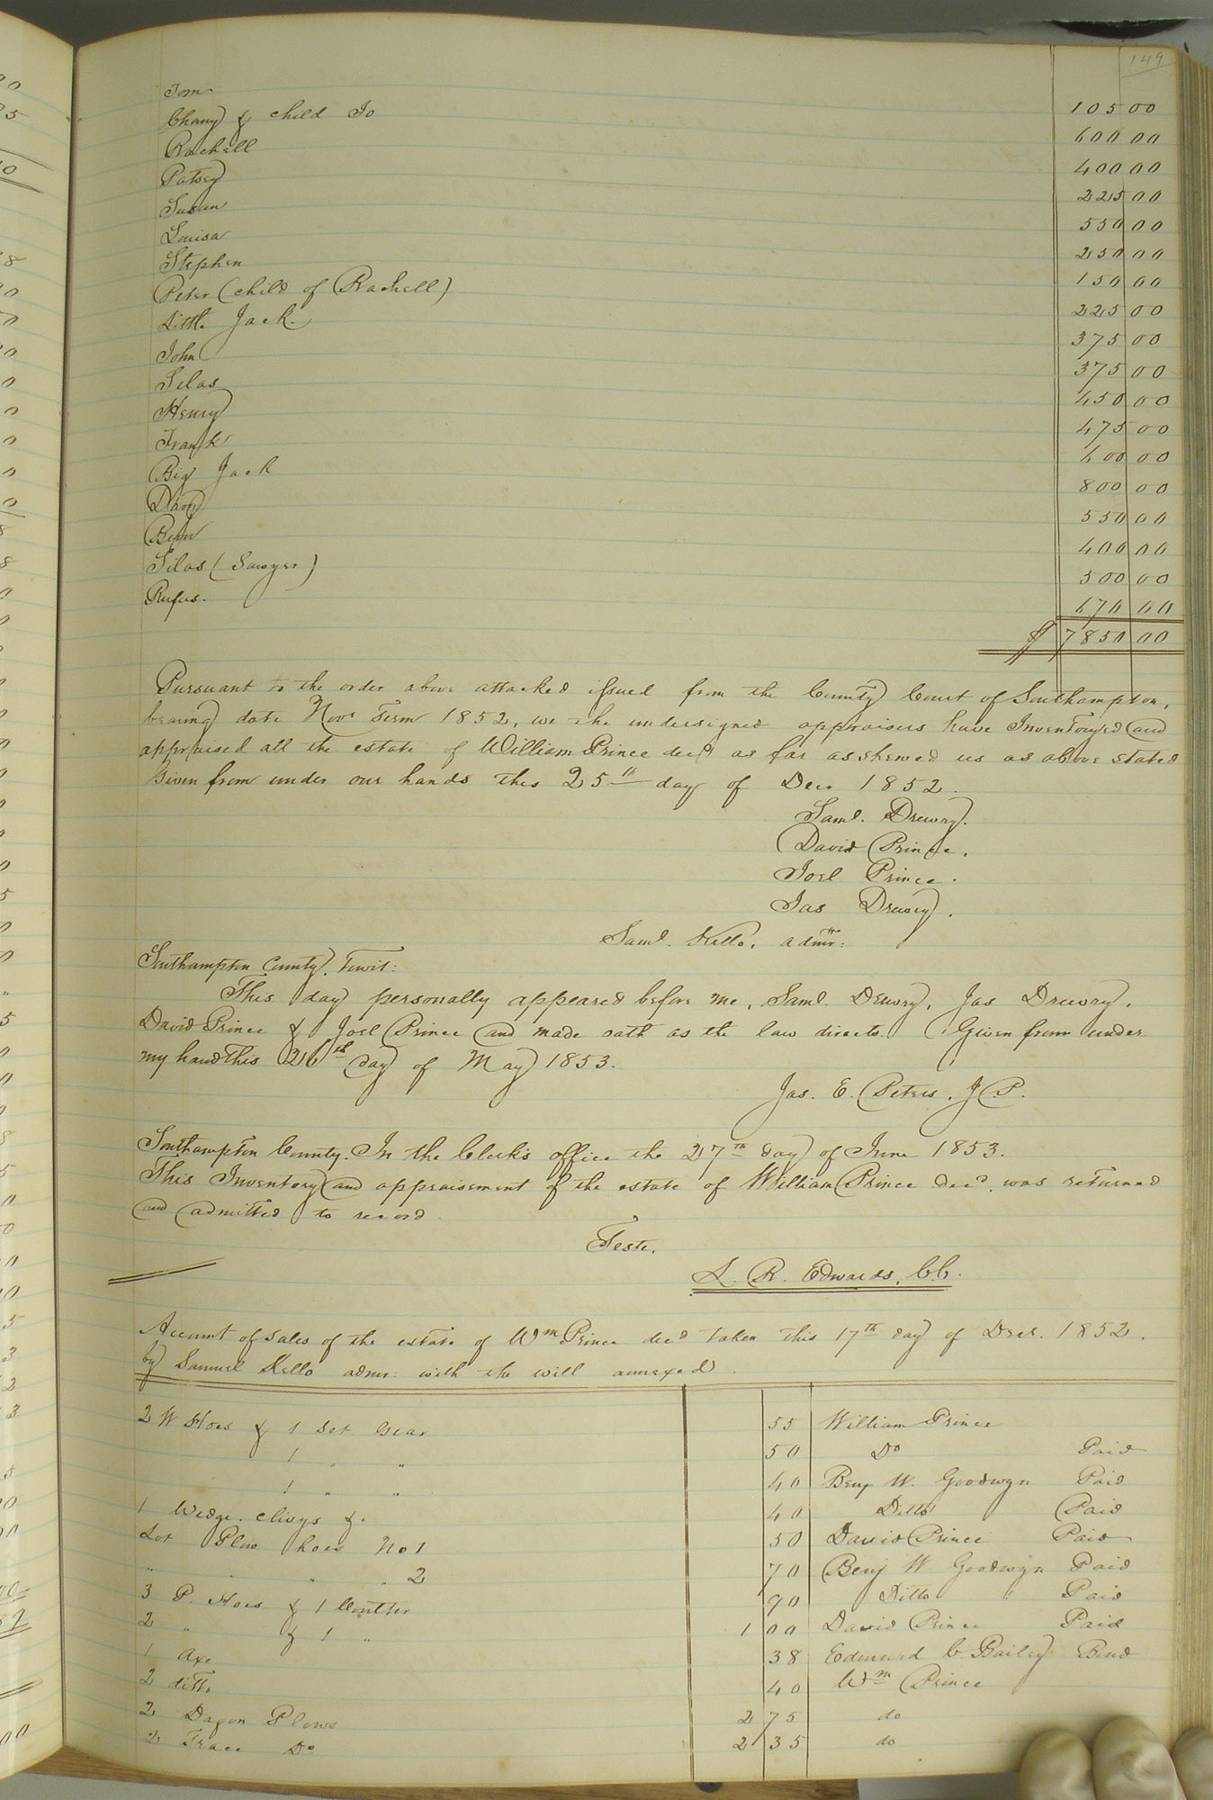 149
Tom 105 00
Chany & child Jo 600 00
Rachell 400 00
Patsey 225 00
Susan 550 00
Louisa 250 00
Stephen 150 00
Peter (child of Rachell) 225 00
Little Jack 375 00
John 375 00
Silas 450 00
Henry 475 00
Frank 600 00
Big Jack 800 00
Davy 550 00
Ben 400 00
Silas (Sawyer) 500 00
Rufus. 670 00
$ 7850 00
Pursuant to the order above attached issued from the County Court of Southampton,
bearing date Novr Term 1852, we the undersigned appraisers have Inventoryed and
appraised all the estate of William Prince decd as far as shewed us as above stated
Given from under our hands this 25th day of Decr 1852.
Saml. Drewry.
David Prince.
Joel Prince.
Jas Drewry.
Saml. Kello, admr:
Southampton County. Towit:
This day personally appeared before me, Saml. Drewry, Jas Drewry,
David Prince & Joel Prince and made oath as the law directs. Given from under
my hand this 26th day of May 1853.
Jas. E. Peters. J.P.
Southampton County. In the Clerk's office the 27th day of June 1853.
This Inventory and appraisement of the estate of William Prince decd. was returned
and admitted to record.
Teste,
L. R. Edwards, C.C.
Account of sales of the estate of Wm Prince decd taken this 17th day of Decr. 1852.
by Samuel Kello admr. with the will annexed
2 W Hoes & 1 Set Gear 55 William Prince
1 " " 50 Do Paid
1 " " 40 Benj W. Goodwyn Paid
1 Wedge. clivys &. 40 Ditto Paid
Lot Plow hoes No 1 50 David Prince Paid
" " " " 2 70 Benj W. Goodwyn Paid
3 P. Hoes & 1 Coulter 90 Ditto Paid
2 " & 1 " 1 00 David Prince Paid
1 Axe 38 Edmund C Bailey Bond
2 ditto 40 Wm Prince
2 Dagon Plows 2 75 do
2 Trace Do 2 35 do